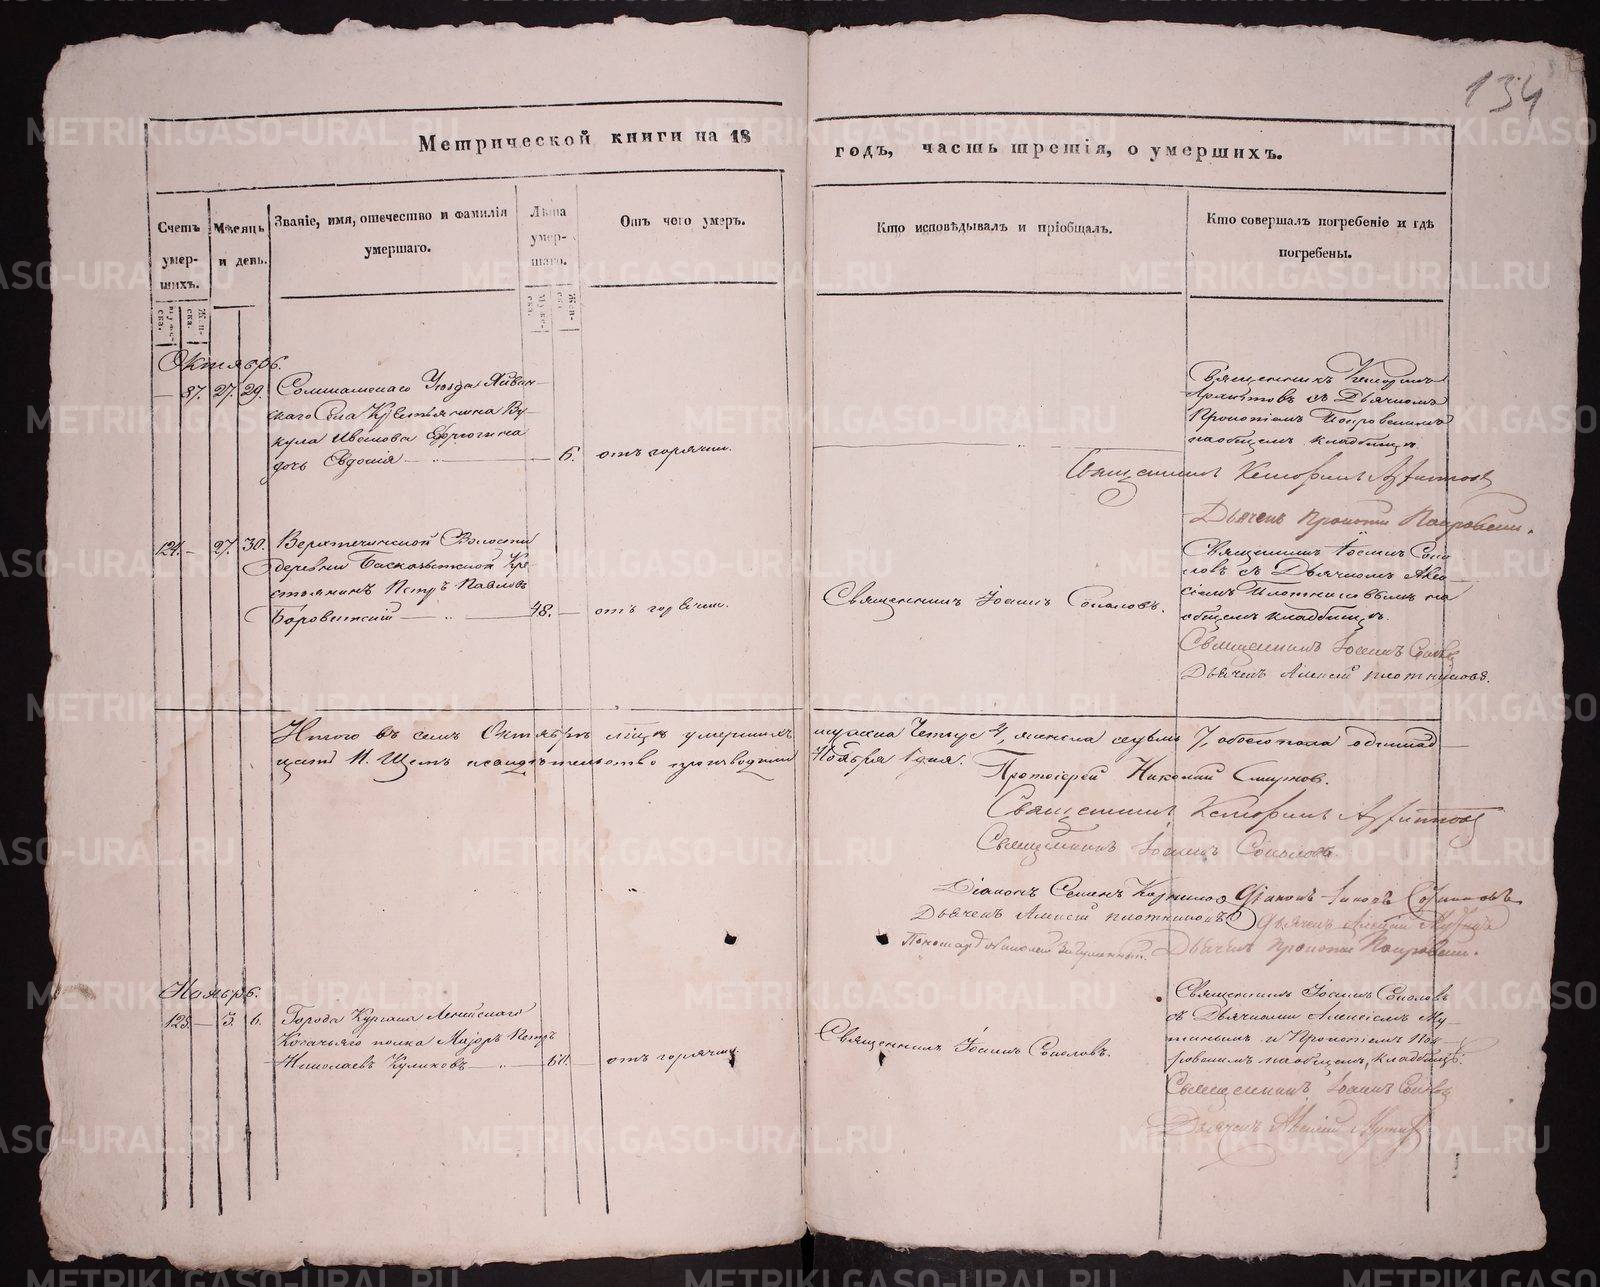 134
Метрической книги на 18 годъ, часть третія, о умершихъ.
Счетъ умер-шихъ.
Мѣсяць и день.
Званіе, имя, отечество и фамилія умершаго.
Лѣта умер-шаго.
Отъ чего умеръ.
Кто исповѣдывалъ и пріобщалъ.
Кто совершалъ погребеніе и гдѣ погребены.
Октябрь.
— 87. 27. 29.
Уѣзда
скаго Села Крестьянина Ву-
кула Иванова
дочь Евдокія — 6. отъ горячки.
Священникъ
съ Дьячкомъ
Прокопіемъ Покровскимъ
на общемъ кладбищѣ.
Священникъ
Дьячекъ Прокопій Покровскій.
124. — 27. 30.
Верхтеченской Волости
деревни Баскозыкской Кре-
стьянинъ Петръ Павловъ
Боровинскій — 48. — отъ горячки.
Священникъ Іоаннъ Соколовъ.
Священникъ Іоаннъ Соко-
ловъ съ Дьячкомъ Алек-
сіемъ Плотниковымъ на
общемъ кладбищѣ.
Священникъ Іоаннъ Соколовъ
Дьячекъ Алексій Плотниковъ.
Итого въ семъ Октябрѣ мѣсяцѣ умершихъ мужеска 4, женска седмь 7, обоего пола одиннад-
цать 11. свидѣтельство производили Ноября 1 дня.
Протоіерей Николай Смирнов.
Священникъ
Священникъ Іоаннъ Соколовъ.
Діаконъ Семенъ Діаконъ
Дьячекъ Алексій Плотниковъ Дьячекъ Алексій
Пономарь Николай Дьячекъ Прокопій Покровскій.
Ноябрь.
125. — 3. 6.
Города Кургана Ленейскаго
Козачьяго полка Маіоръ Петръ
Николаевъ Куликовъ — 60. — отъ горячки.
Священникъ Іоаннъ Соколовъ.
Священникъ Іоаннъ Соколовъ
съ Дьячками Алексіемъ Му-
тинымъ и Прокопіемъ Пок-
ровскимъ на общемъ кладбищѣ.
Священникъ Іоаннъ Соколовъ
Дьячекъ Алексій Мутинъ
METRIKI.GASO-URAL.RU